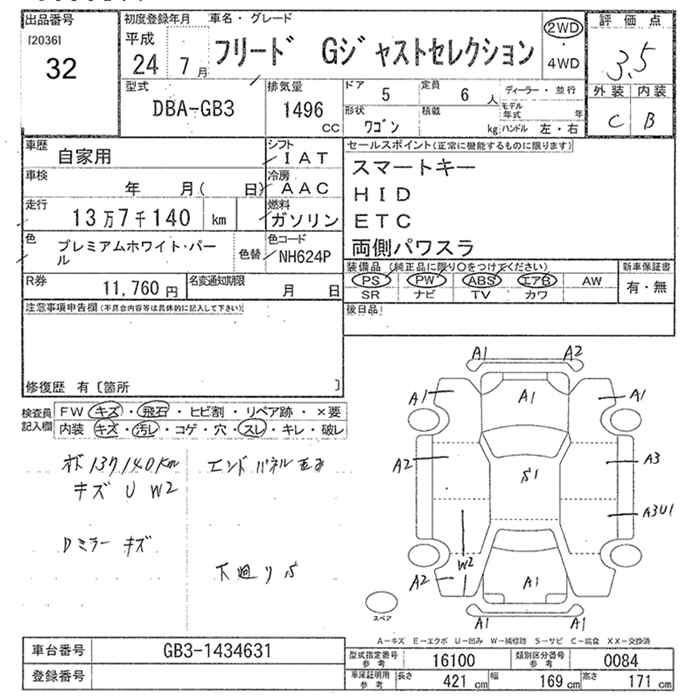 出品番号
[2036]
32
初度登録年月
平成
24 7 月
車名・グレード
フリード Gジャストセレクション
2WD
・
4WD
評価点
3.5
外装 内装
C B
型式
DBA-GB3
排気量
1496
CC
ドア 5
定員 6 人
形状
ワゴン
積載 kg
ディーラー・並行
モデル年式 年
ハンドル 左・右
車歴 自家用
シフト
IAT
車検 年 月( 日)
冷房
AAC
走行 13万7千140 km
燃料
ガソリン
色 プレミアムホワイト・パール
色替
色コード
NH624P
R券 11,760 円
名変通知期限 月 日
セールスポイント(正常に機能するものに限ります)
スマートキー
HID
ETC
両側パワスラ
装備品 (純正品に限り○をつけてください)
PS PW ABS エアB AW
SR ナビ TV カワ
新車保証書
有・無
後日品
注意事項申告欄(不具合内容等は具体的に記入して下さい)
修復歴 有〔箇所 〕
検査員記入欄
FW キズ・飛石・ヒビ割・リペア跡・×要
内装 キズ・汚レ・コゲ・穴・スレ・キレ・破レ
137140km
キズ U W2
Dミラー キズ
エンドパネル
下廻りS
A1 A2
A1 A1 A1
A2 S1 A3
A3U1
W2
A2 A1
A1 A1
スペア
A-キズ E-エクボ U-凹み W-補修跡 S-サビ C-腐食 XX-交換済
車台番号 GB3-1434631
登録番号
型式指定番号 参考 16100
類別区分番号 参考 0084
車庫証明用 参考 長さ 421 cm 幅 169 cm 高さ 171 cm